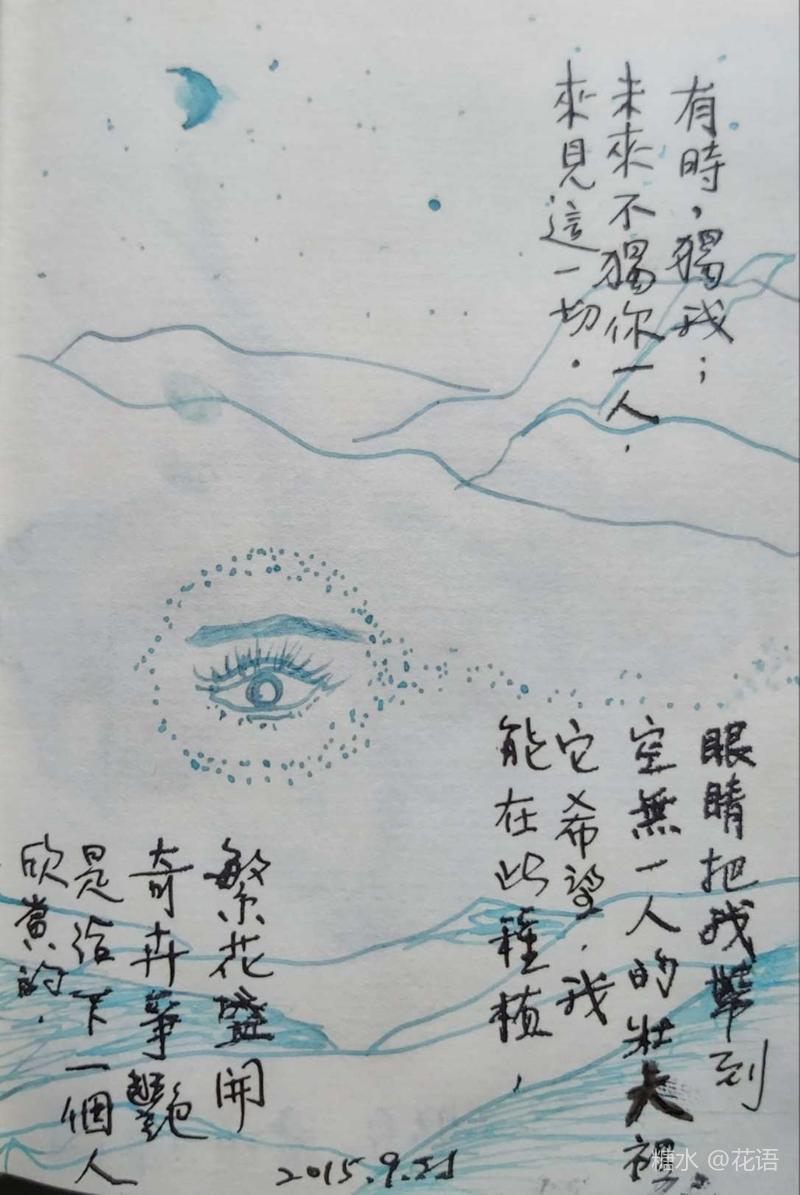 有時，獨我；
未來不獨你一人，
來見這一切．
眼睛把我帶到
空無一人的壯大裡，
它希望，我
能在此種植，
繁花盛開
奇卉爭艷
是給下一個人
欣賞的．
2015.9.21
糖水 @花语